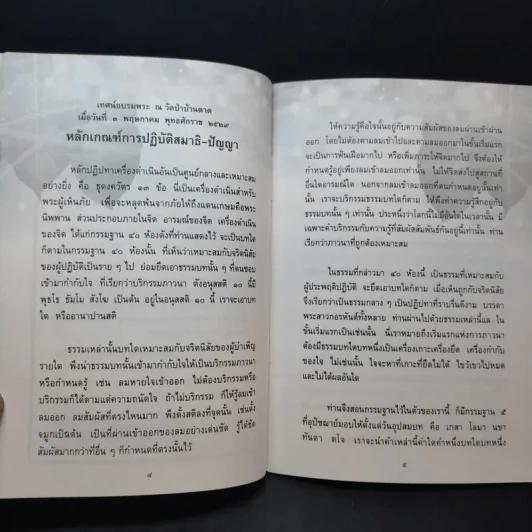 เทศน์อบรมพระ ณ วัดป่าบ้านตาด
เมื่อวันที่ ๑ พฤษภาคม พุทธศักราช ๒๕๒๙
หลักเกณฑ์การปฏิบัติสมาธิ-ปัญญา
หลักปฏิปทาเครื่องดำเนินอันเป็นศูนย์กลางและเหมาะสม
อย่างยิ่ง คือ ธุดงควัตร ๑๓ ข้อ นี่เป็นเครื่องดำเนินสำหรับ
พระผู้เห็นภัย เพื่อจะหลุดพ้นจากภัยให้ถึงแดนเกษมคือพระ
นิพพาน ส่วนประกอบภายในจิต อารมณ์ของจิต เครื่องดำเนิน
ของจิต ได้แก่กรรมฐาน ๔๐ ห้องดังที่ท่านแสดงไว้ จะเป็นบทใด
ก็ตามในกรรมฐาน ๔๐ ห้องนั้น ที่เห็นว่าเหมาะสมกับจริตนิสัย
ของผู้ปฏิบัติเป็นราย ๆ ไป ย่อมยึดเอาธรรมบทนั้น ๆ ที่ตนชอบ
เข้ามากำกับใจ ที่เรียกว่าบริกรรมภาวนา ดังอนุสสติ ๑๐ นี้มี
พุทโธ ธัมโม สังโฆ เป็นต้น อยู่ในอนุสสติ ๑๐ นี้ เราจะเอาบท
ใด หรืออานาปานสติ
ธรรมเหล่านั้นบทใดเหมาะสมกับจริตนิสัยของผู้บำเพ็ญ
รายใด พึงนำธรรมบทนั้นเข้ามากำกับใจให้เป็นบริกรรมภาวนา
หรือกำหนดรู้ เช่น ลมหายใจเข้าออก ไม่ต้องบริกรรมหรือ
บริกรรมก็ได้ตามแต่ความถนัดใจ ถ้าไม่บริกรรม ก็ให้รู้ลมเข้า
ลมออก ลมสัมผัสที่ตรงไหนมาก พึงตั้งสติลงที่จุดนั้น เช่นดั้ง
จมูกเป็นต้น เป็นที่ผ่านเข้าออกของลมอย่างเด่นชัด รู้ได้ชัด
สัมผัสมากกว่าที่อื่น ๆ ก็กำหนดที่ตรงนั้นไว้
๔
ให้ความรู้คือใจนั้นอยู่กับความสัมผัสของลมผ่านเข้าผ่าน
ออก โดยไม่ต้องตามลมเข้าไปและตามลมออกมาในขั้นเริ่มแรก
จะเป็นการฟั่นเฝือมากไป หรือเพิ่มภาระให้จิตมากไป จึงต้องให้
กำหนดรู้อยู่เพียงลมเข้าลมออกเท่านั้น ไม่ให้จิตส่งไปสู่สถานที่
อื่นใดอารมณ์ใด นอกจากลมเข้าลมออกที่ตนกำหนดอยู่นั้นเท่านั้น
เราจะบริกรรมธรรมบทใดก็ตาม ให้พึงทำความรู้สึกอยู่กับ
ธรรมบทนั้น ๆ เท่านั้น ประหนึ่งว่าโลกนี้ไม่มีอันใดในเวลานั้น มี
เฉพาะคำบริกรรมกับความรู้ที่สัมผัสสัมพันธ์กันอยู่นี้เท่านั้น ท่าน
เรียกว่าภาวนาที่ถูกต้องเหมาะสม
ในธรรมที่กล่าวมา ๔๐ ห้องนี้ เป็นธรรมที่เหมาะสมกับ
ผู้ประพฤติปฏิบัติ จะยึดเอาบทใดก็ตาม เมื่อเห็นถูกกับจริตนิสัย
จึงเรียกว่าเป็นธรรมกลาง ๆ เป็นปฏิปทาที่ราบรื่นดีงาม บรรดา
พระสาวกอรหันต์ทั้งหลาย ท่านผ่านไปด้วยธรรมเหล่านี้แล ใน
ขั้นเริ่มแรกเป็นเช่นนั้น นี่เราหมายถึงเริ่มแรกแห่งการภาวนา
ต้องมีธรรมบทใดบทหนึ่งเป็นเครื่องเกาะเครื่องยึด เครื่องกำกับ
ของใจ ไม่เช่นนั้น ใจจะหาที่เกาะที่ยึดไม่ได้ ไขว้เขวไปหมด
และไม่ได้ผลอันใด
ท่านจึงสอนกรรมฐานไว้ในตัวของเรานี้ ก็มีกรรมฐาน ๕
ที่อุปัชฌาย์มอบให้ตั้งแต่วันอุปสมบท คือ เกสา โลมา นขา
ทันตา ตโจ เราจะนำคำเหล่านี้คำใดคำหนึ่งบทใดบทหนึ่ง
๕